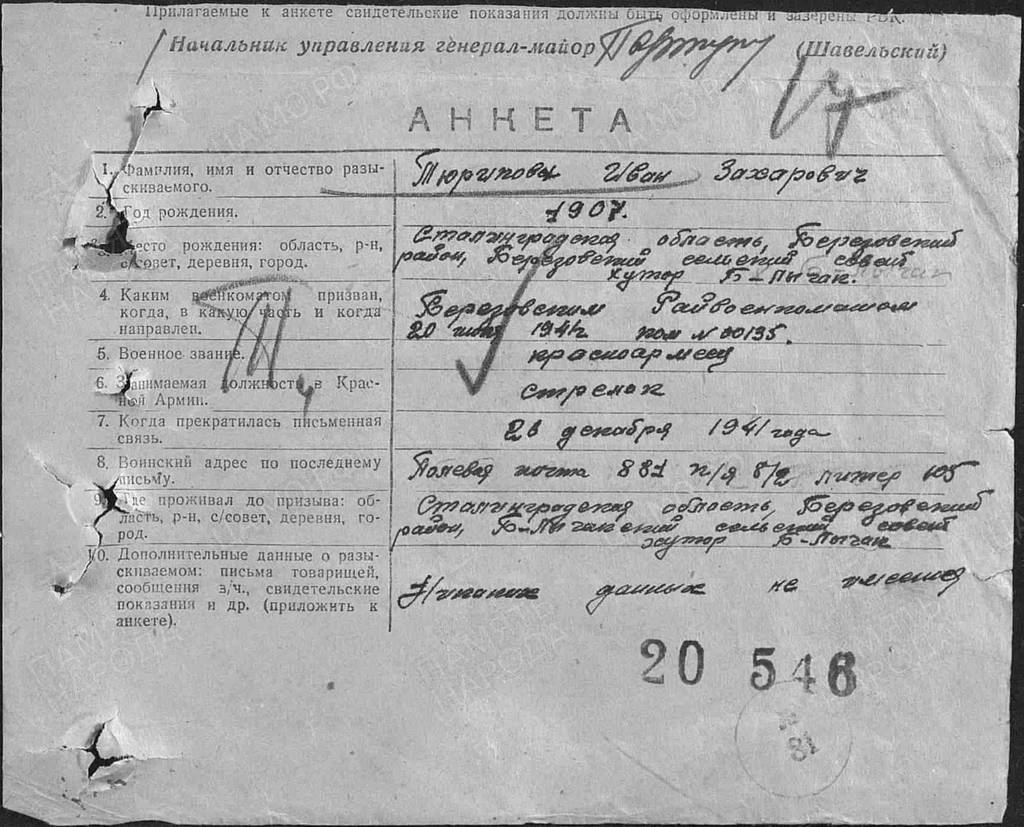 Прилагаемые к анкете свидетельские показания должны быть оформлены и заверены РВК.
Начальник управления генерал-майор (Шавельский)
АНКЕТА
1. Фамилия, имя и отчество разы-
скиваемого.
Иван Захарович
2. Год рождения.
1907.
3. Место рождения: область, р-н,
с/совет, деревня, город.
Сталинградская область, Березовский
район, Березовский сельский совет
хутор Б-Лычак.
4. Каким военкоматом призван,
когда, в какую часть и когда
направлен.
Березовским Райвоенкоматом
20 1941г ком N 00135.
5. Военное звание.
красноармеец
6. Занимаемая должность в Крас-
ной Армии.
стрелок
7. Когда прекратилась письменная
связь.
26 декабря 1941 года
8. Воинский адрес по последнему
письму.
Полевая почта 881 п/я 8/2 литер 105
9. Где проживал до призыва: об-
ласть, р-н, с/совет, деревня, го-
род.
Сталинградская область, Березовский
район, Б-Лычакский сельский совет
хутор Б-Лычак
10. Дополнительные данные о разы-
скиваемом: письма товарищей,
сообщения з/ч., свидетельские
показания и др. (приложить к
анкете).
Никаких данных не имеется
20 546
81